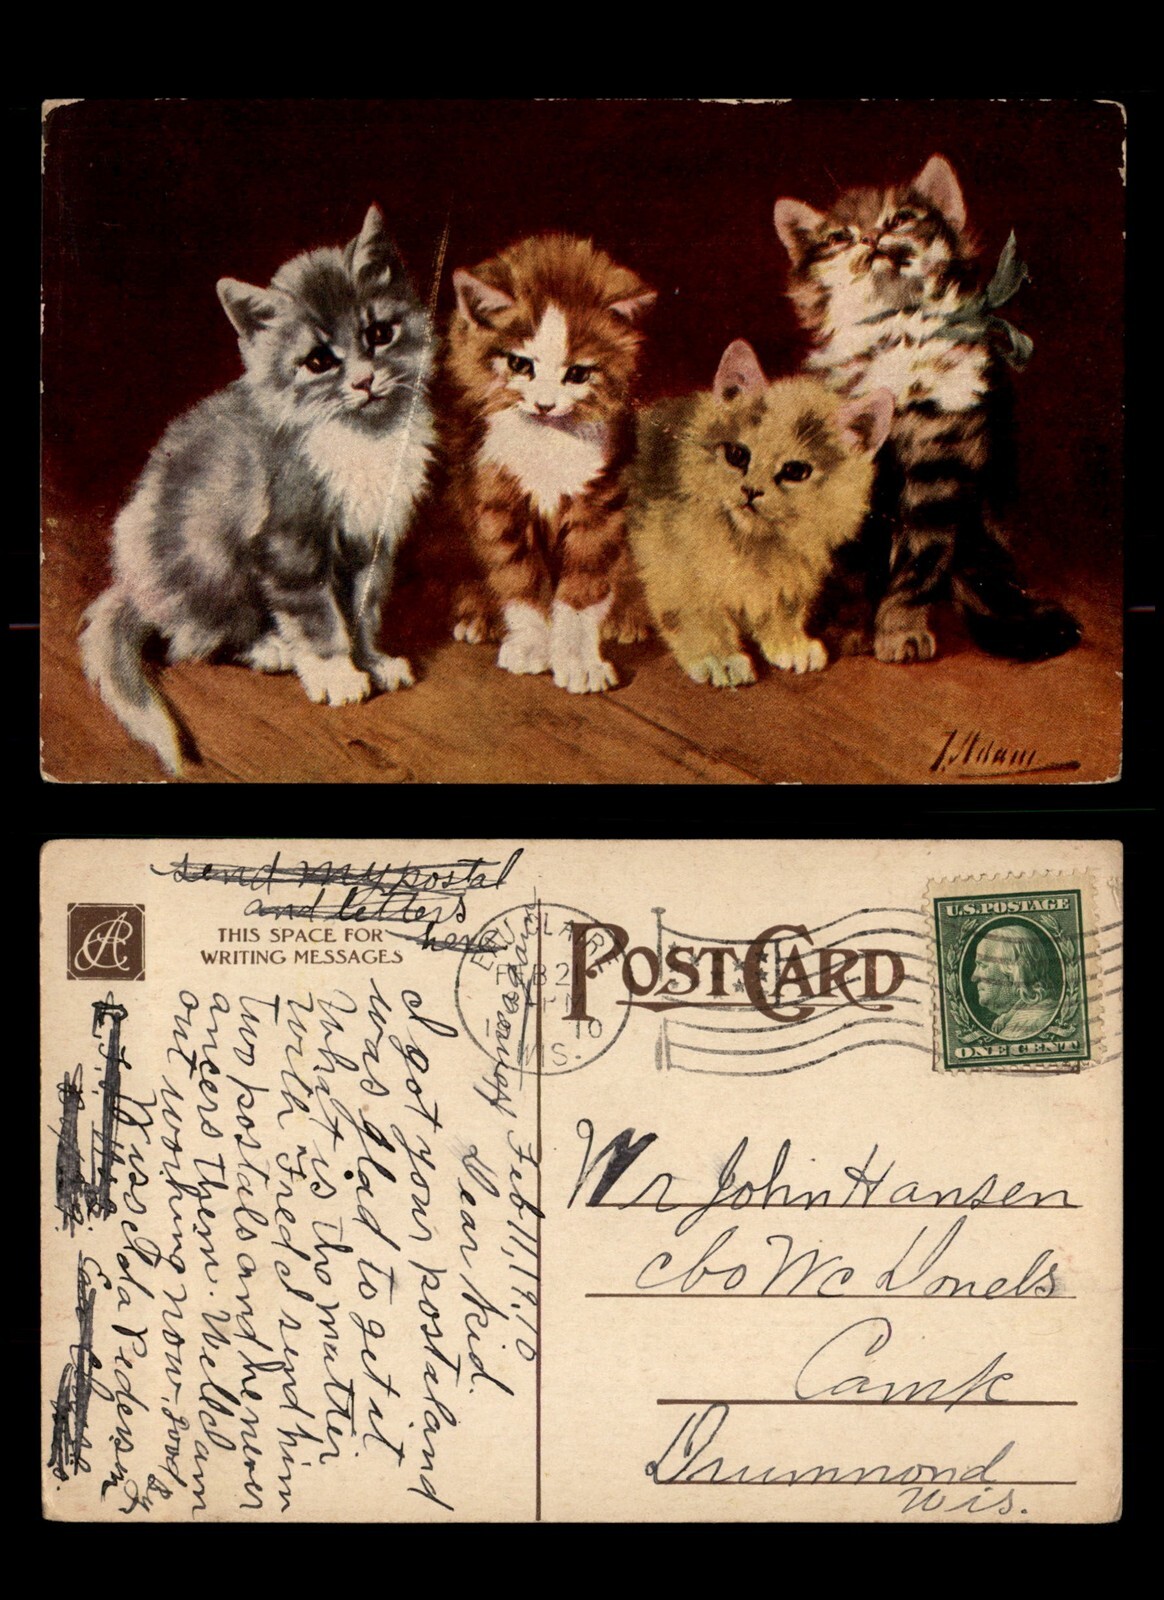 J. Adam
send my postal
and letters
here
THIS SPACE FOR
WRITING MESSAGES
POST CARD
EAU CLAIRE
FEB 21
10
WIS.
U.S. POSTAGE
ONE CENT
Feb 11, 1910
Dear Kid.
I got your postal and
was glad to get it
What is the matter
with Fred I send him
two postals and he never
ancers them. Well I am
out working now. good by
Miss Ida Pedersen
Mr John Hansen
c/o Mc Donels
Camp
Drummond
Wis.